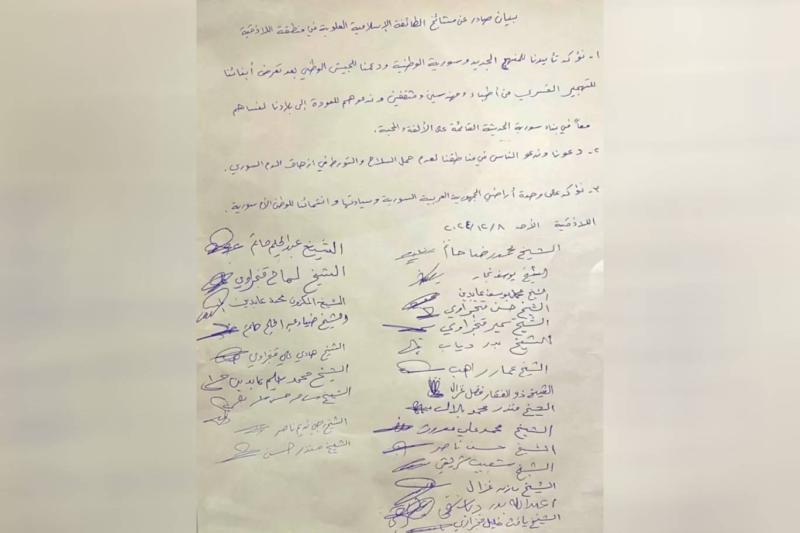 بيان صادر عن مشائخ الطائفة الإسلامية العلوية في منطقة اللاذقية
١- نؤكد تأييدنا للمنهج الجديد وسورية الوطنية ودعمنا للجيش الوطني بعد تعرض أبنائنا
للتهجير القسري من أطباء ومهندسين ومثقفين وندعوهم للعودة إلى بلادنا لنساهم
معاً في بناء سورية الحديثة القائمة على الألفة والمحبة.
٢- دعونا وندعو الناس في مناطقنا لعدم حمل السلاح والتورط في ازهاق الدم السوري.
٣- نؤكد على وحدة أراضي الجمهورية العربية السورية وسيادتها وانتمائنا للوطن الأم سورية.
اللاذقية الأحد ٢٠٢٤/١٢/٨
الشيخ محمد رضا حاتم
الشيخ يوسف نجار
الشيخ محمد يوسف عابدين
الشيخ حسن قنجراوي
الشيخ سمير قنجراوي
الشيخ بدر دياب
الشيخ عمار راهب
الشيخ ذو الفقار فضل غزال
الشيخ منذر محمد بلال
الشيخ محمد علي معروف
الشيخ حسن ناصر
الشيخ شعيب شريقي
الشيخ مازن غزال
عبدالله بدر
الشيخ خليل قنجراوي
الشيخ عبد الحليم حاتم
الشيخ صالح قنجراوي
الشيخ المكزون محمد عابدين
الشيخ ضياء عبد الحليم حاتم
الشيخ هادي علي قنجراوي
الشيخ محمد سليم عابدين
الشيخ حسن
الشيخ ناصر
الشيخ منذر حسن